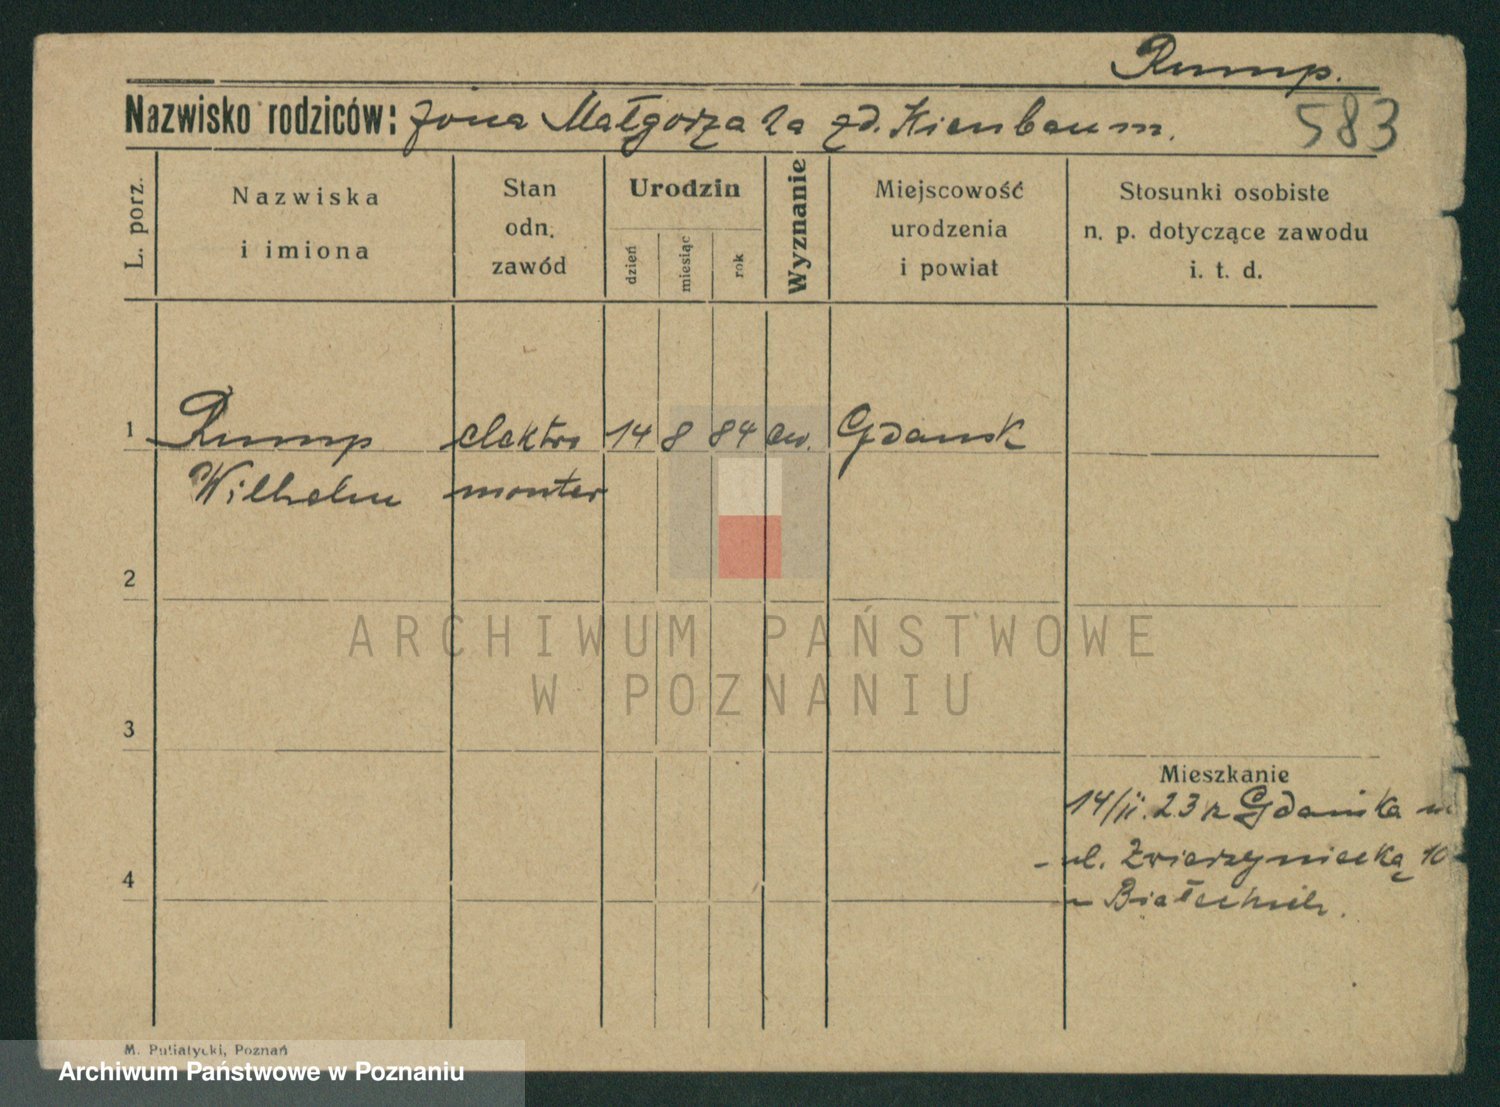 Rump.
Nazwisko rodziców: żona Małgorzata zd. Kienbaum.
583
L. porz.
Nazwiska
i imiona
Stan
odn.
zawód
Urodzin
dzień
miesiąc
rok
Wyznanie
Miejscowość
urodzenia
i powiat
Stosunki osobiste
n. p. dotyczące zawodu
i. t. d.
1 Rump elektro 14 8 84 ew. Gdansk
Wilhelm monter
2
3
4
Mieszkanie
14/II.23 z Gdańska
ul. Zwierzyniecką 10
u Białeckich.
ARCHIWUM PAŃSTWOWE
W POZNANIU
M. Putiatycki, Poznań
Archiwum Państwowe w Poznaniu